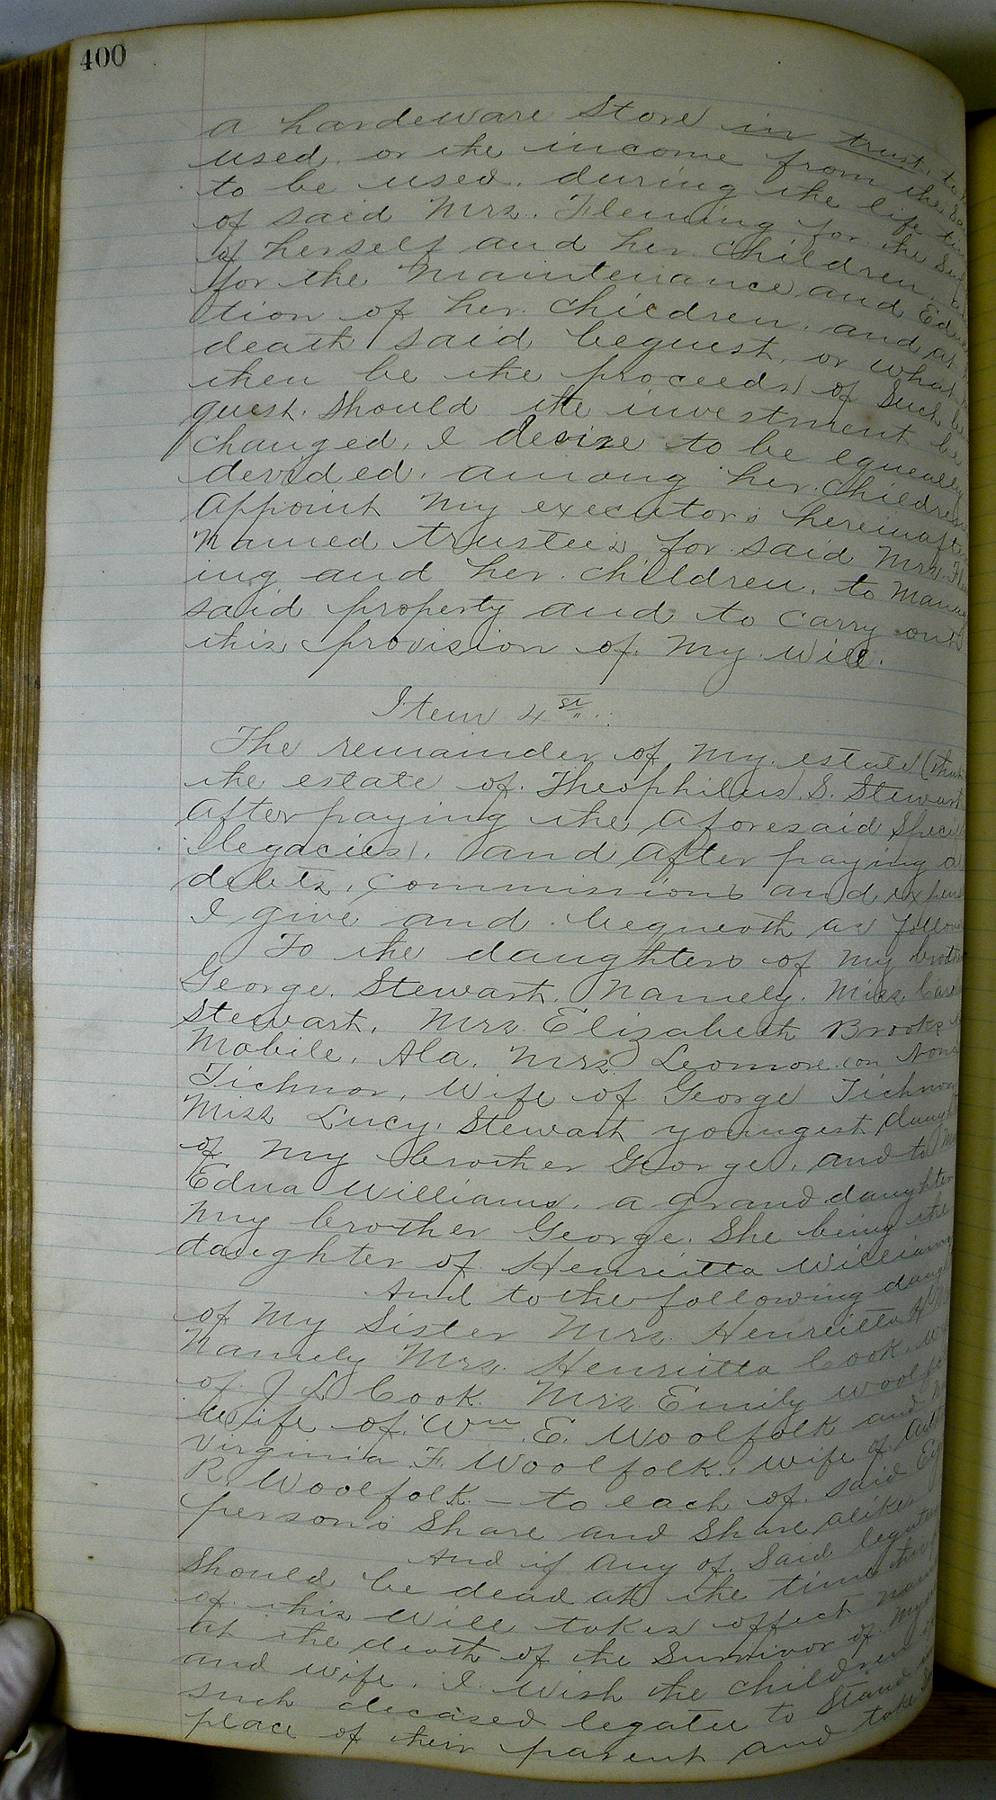 400
a hardeware Store in trust, to
used. or the income from the
to be used. during the life
of said Mrs. Fleming for the
of herself and her Children
for the Maintenance and
tion of her. Children. and at
death said bequest, or what
then be the proceeds of Such be
quest. Should the investment be
changed, I desire to be equeally
devided. among her. Children
Appoint My executors hereinafter
Named trustees for said Mrs.
ing and her. Children, to
said property and to carry out
this provision of. My. Will.
Item 4st
The remainder of My. estate
the estate of. Theophilus S. Stewart
After paying the Aforesaid
legacies, and After paying
debts, Commissions and
I give and bequeoth as
To the daughters of My
George. Stewart. Namely. Miss
Stewart. Mrs. Elizabeth Brooks
Mobile, Ala. Mrs. Leonore. on
Tichnor, Wife of George Tichnor
Miss Lucy. Stewart youngest
of My brother George. and to
Edna Williams. a grand daughter
My brother George. She being the
daughter of Henrietta Williams
And to the following
of My Sister Mrs. Henrietta
Namely Mrs. Henrietta Cook.
of J L Cook. Mrs. Emily
Wife of. Wm. E. Woolfolk and
Virginia F. Woolfolk, wife of
R. Woolfolk - to each of. said
persons Share and Share alike
And if any of. Said
Should be dead at the time
of this Will takes effect
at the death of the Survivor of
and wife. I wish the Children
such deceased legatee to Stand
place of their parent and